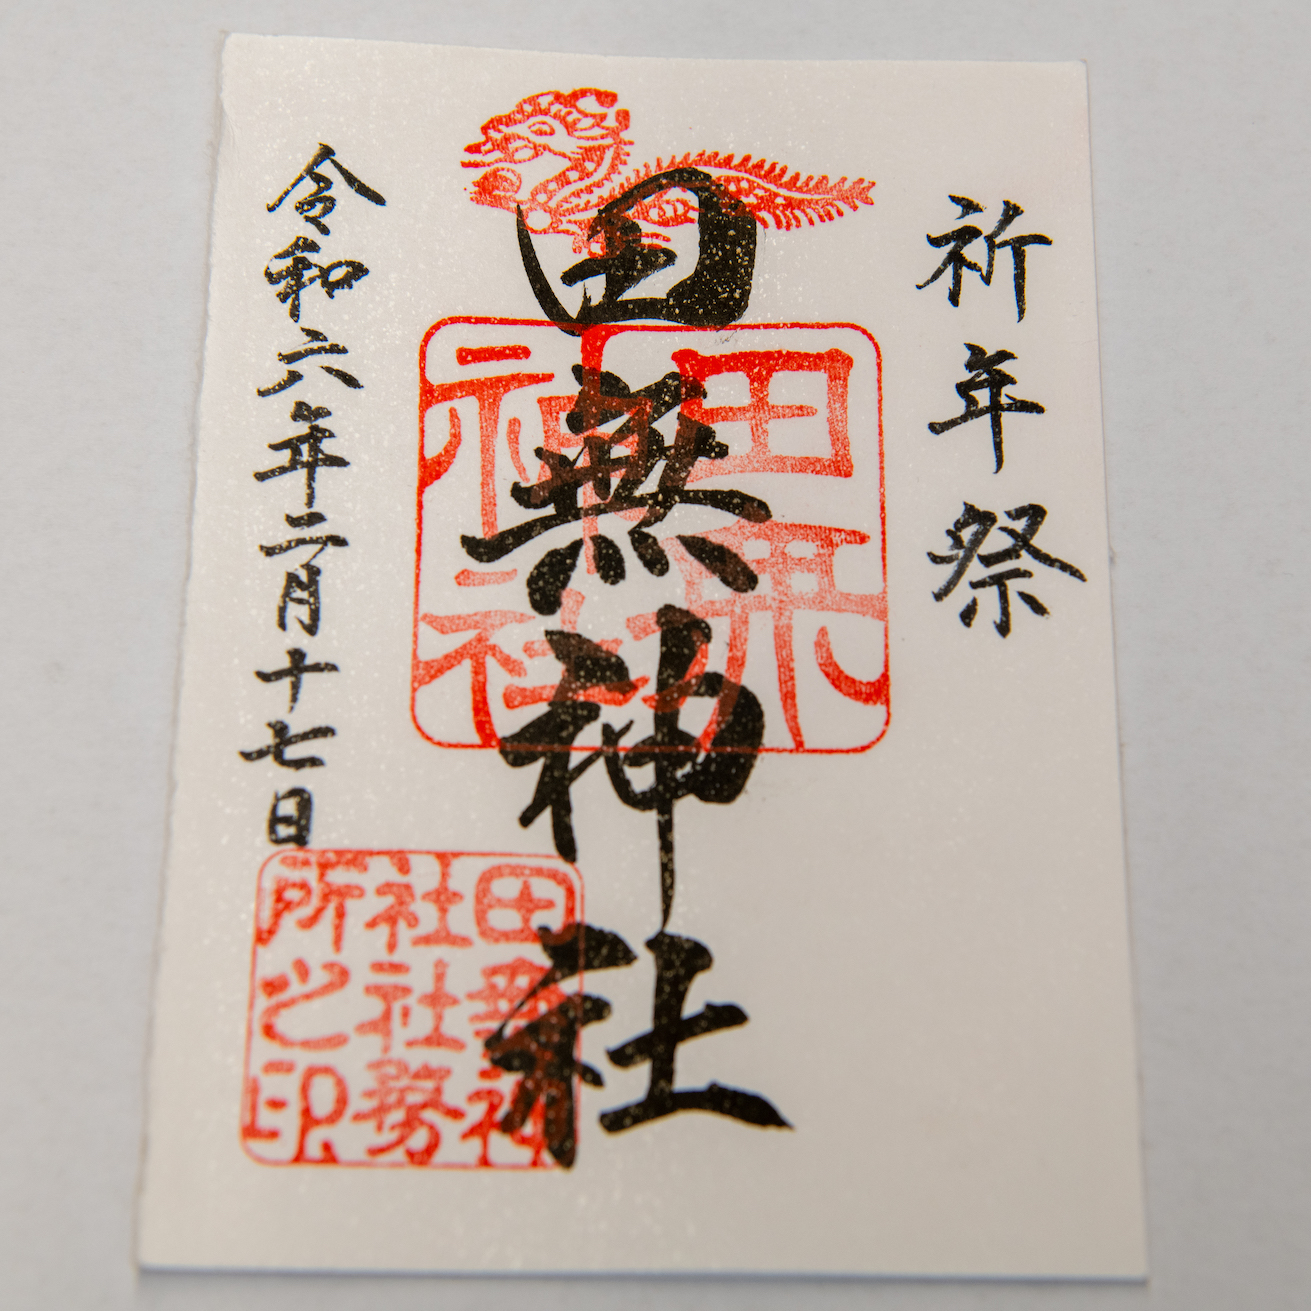 祈年祭
田無神社
令和六年二月十七日
田無
神社
田無神
社社務
所之印